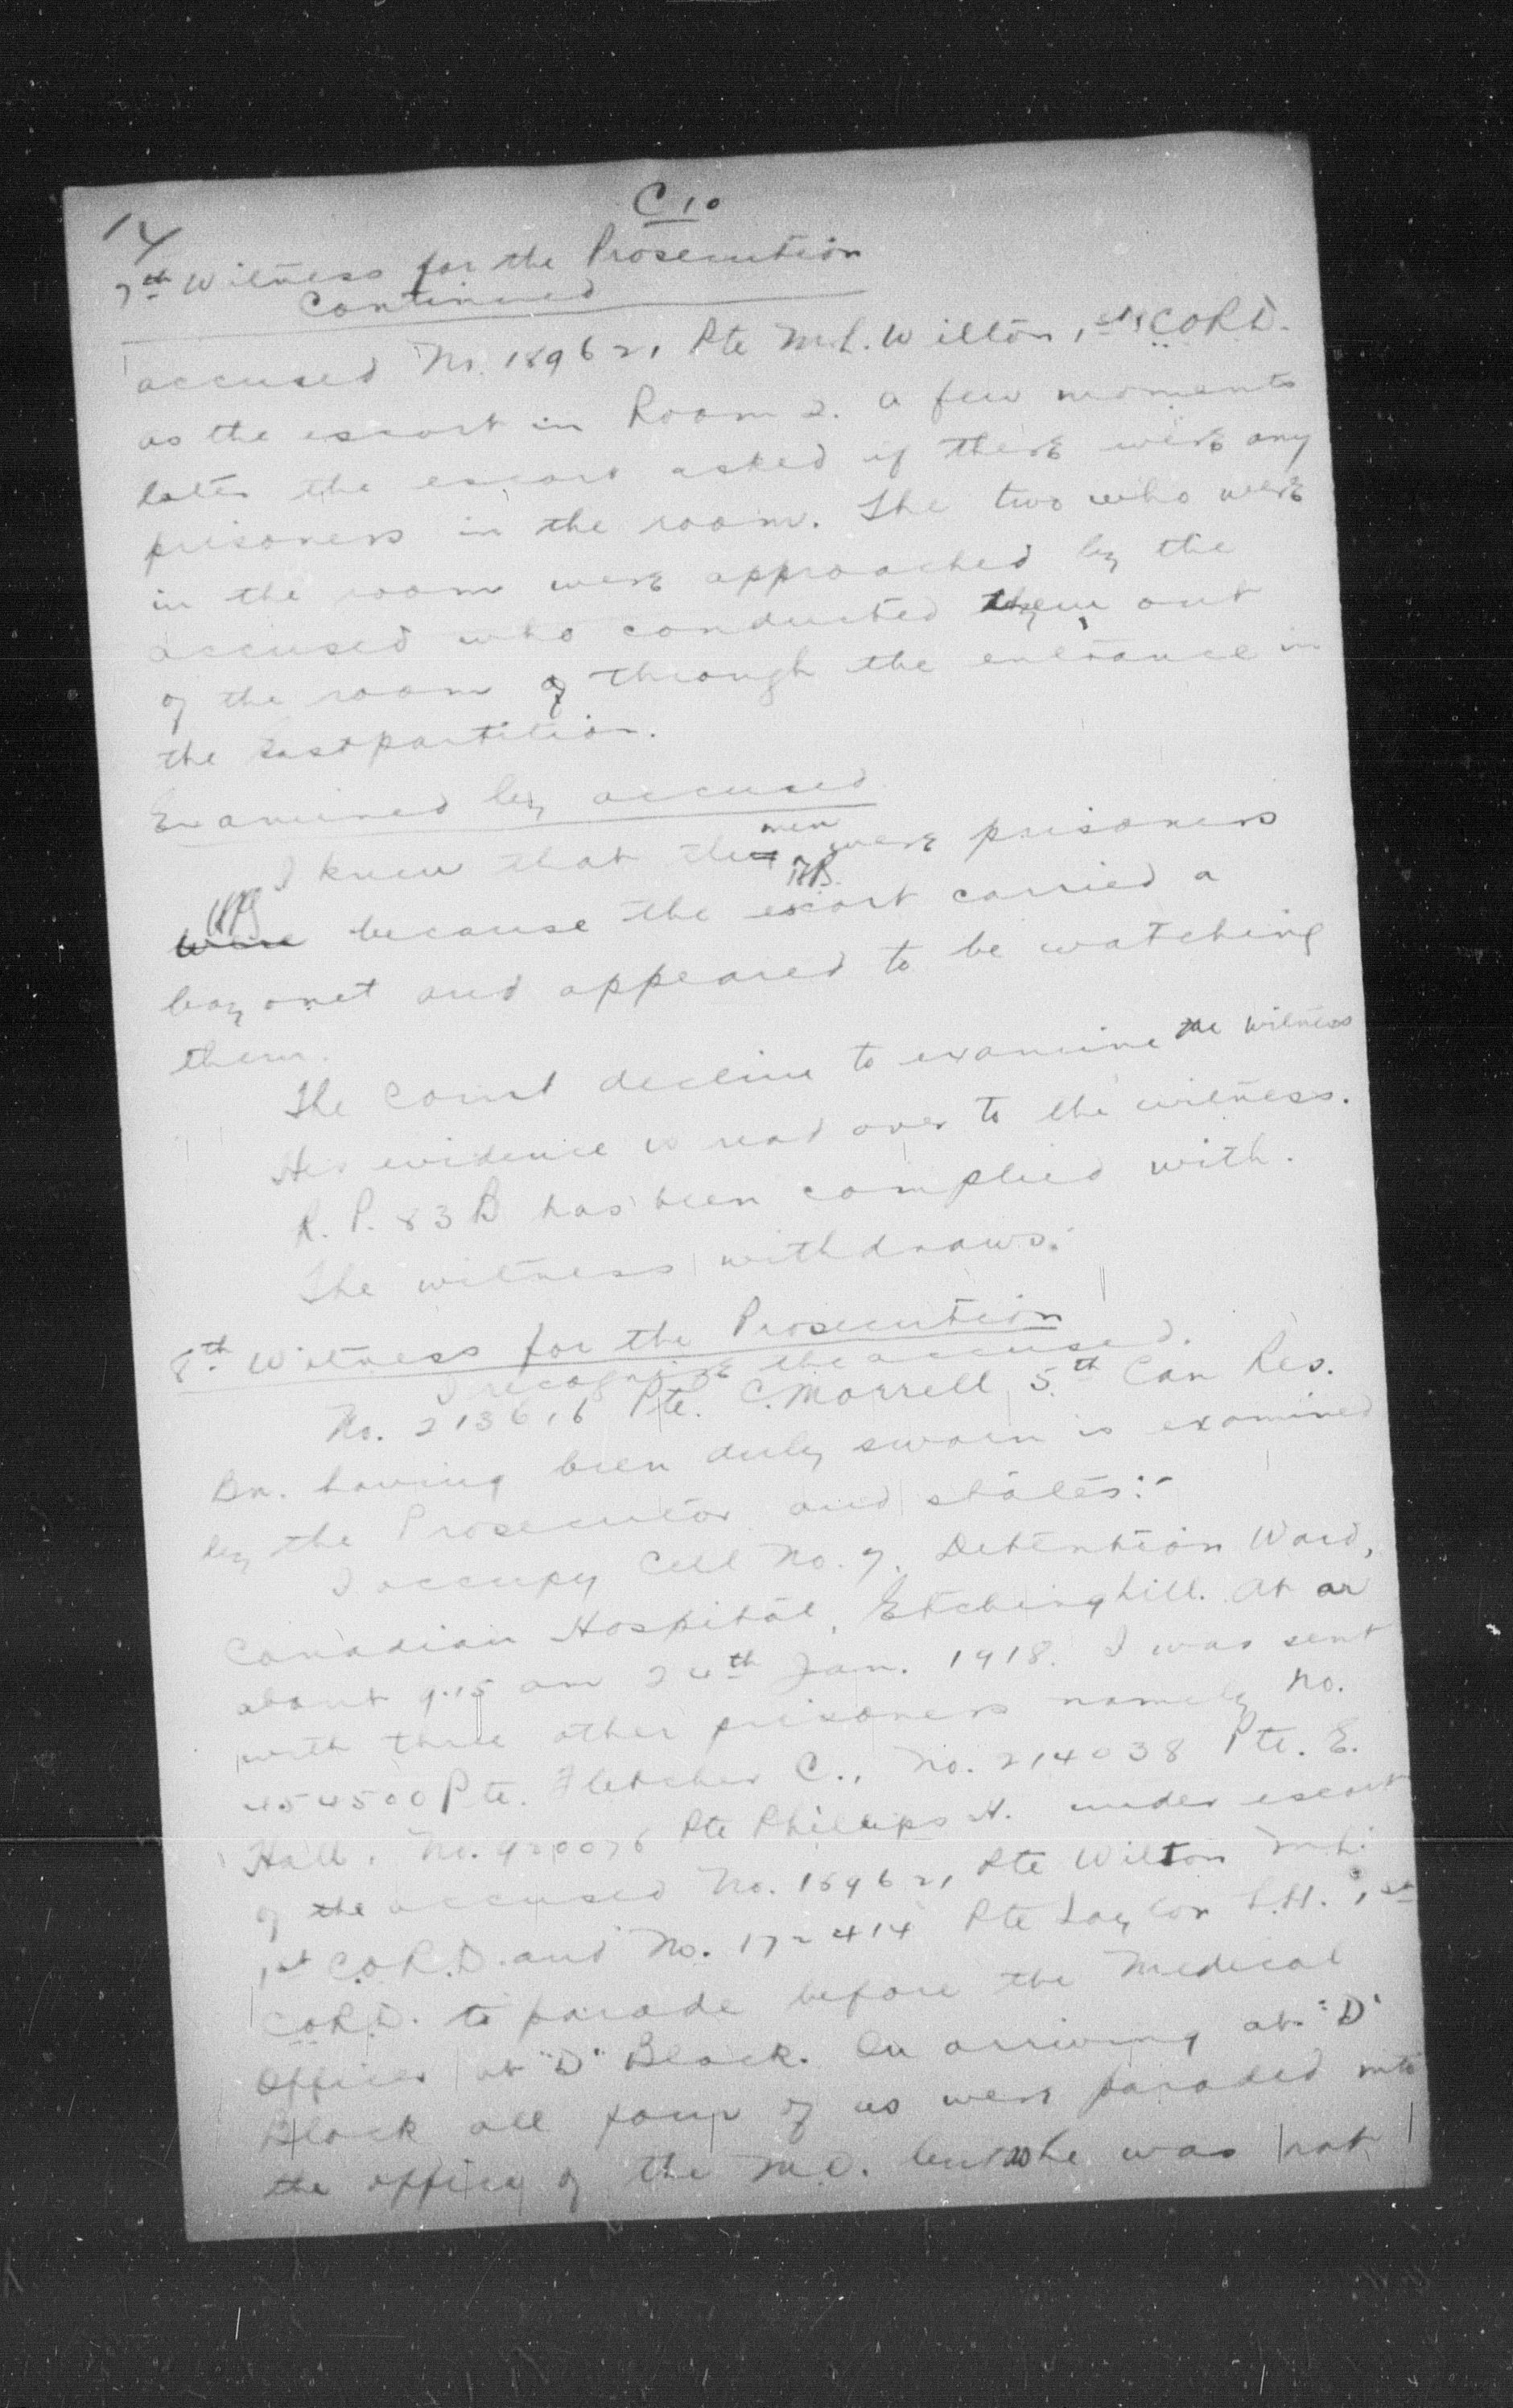 C 10
14
7th Witness for the Prosecution
Continued
accused No. 189621 Pte M.L. Wilton, 1st C.O.R.D.
as the escort in Room 2. A few moments
later the escort asked if there were any
prisoners in the room. The two who were
in the room were approached by the
accused who conducted them out
of the room of through the entrance in
the East partition.
Examined by accused
I knew that the men were prisoners
were because the escort carried a
bayonet and appeared to be watching
them.
The Court decline to examine the witness
His evidence is read over to the witness.
R. P. 83 B has been complied with.
The witness withdraws.
8th Witness for the Prosecution
I recognize the accused.
No. 213616 Pte. C. Morrell, 5th Can Res.
Bn. having been duly sworn is examined
by the Prosecutor and states:-
I occupy Cell No. 7. Detention Ward,
Canadian Hospital, Etchinghill. At or
about 9.15 am 24th Jan. 1918. I was sent
with three other prisoners namely No.
454500 Pte. Fletcher C., No. 214038 Pte. E.
Hall, No. 920076 Pte Phillips H. under escort
of the accused No. 189621 Pte Wilton M.L.
1st C.O.R.D. and No. 172414 Pte Taylor L.H. 1st
C.O.R.D. to parade before the Medical
Officer at "D" Block. On arriving at "D"
Block all four of us were paraded into
the office of the M.O. but he was not